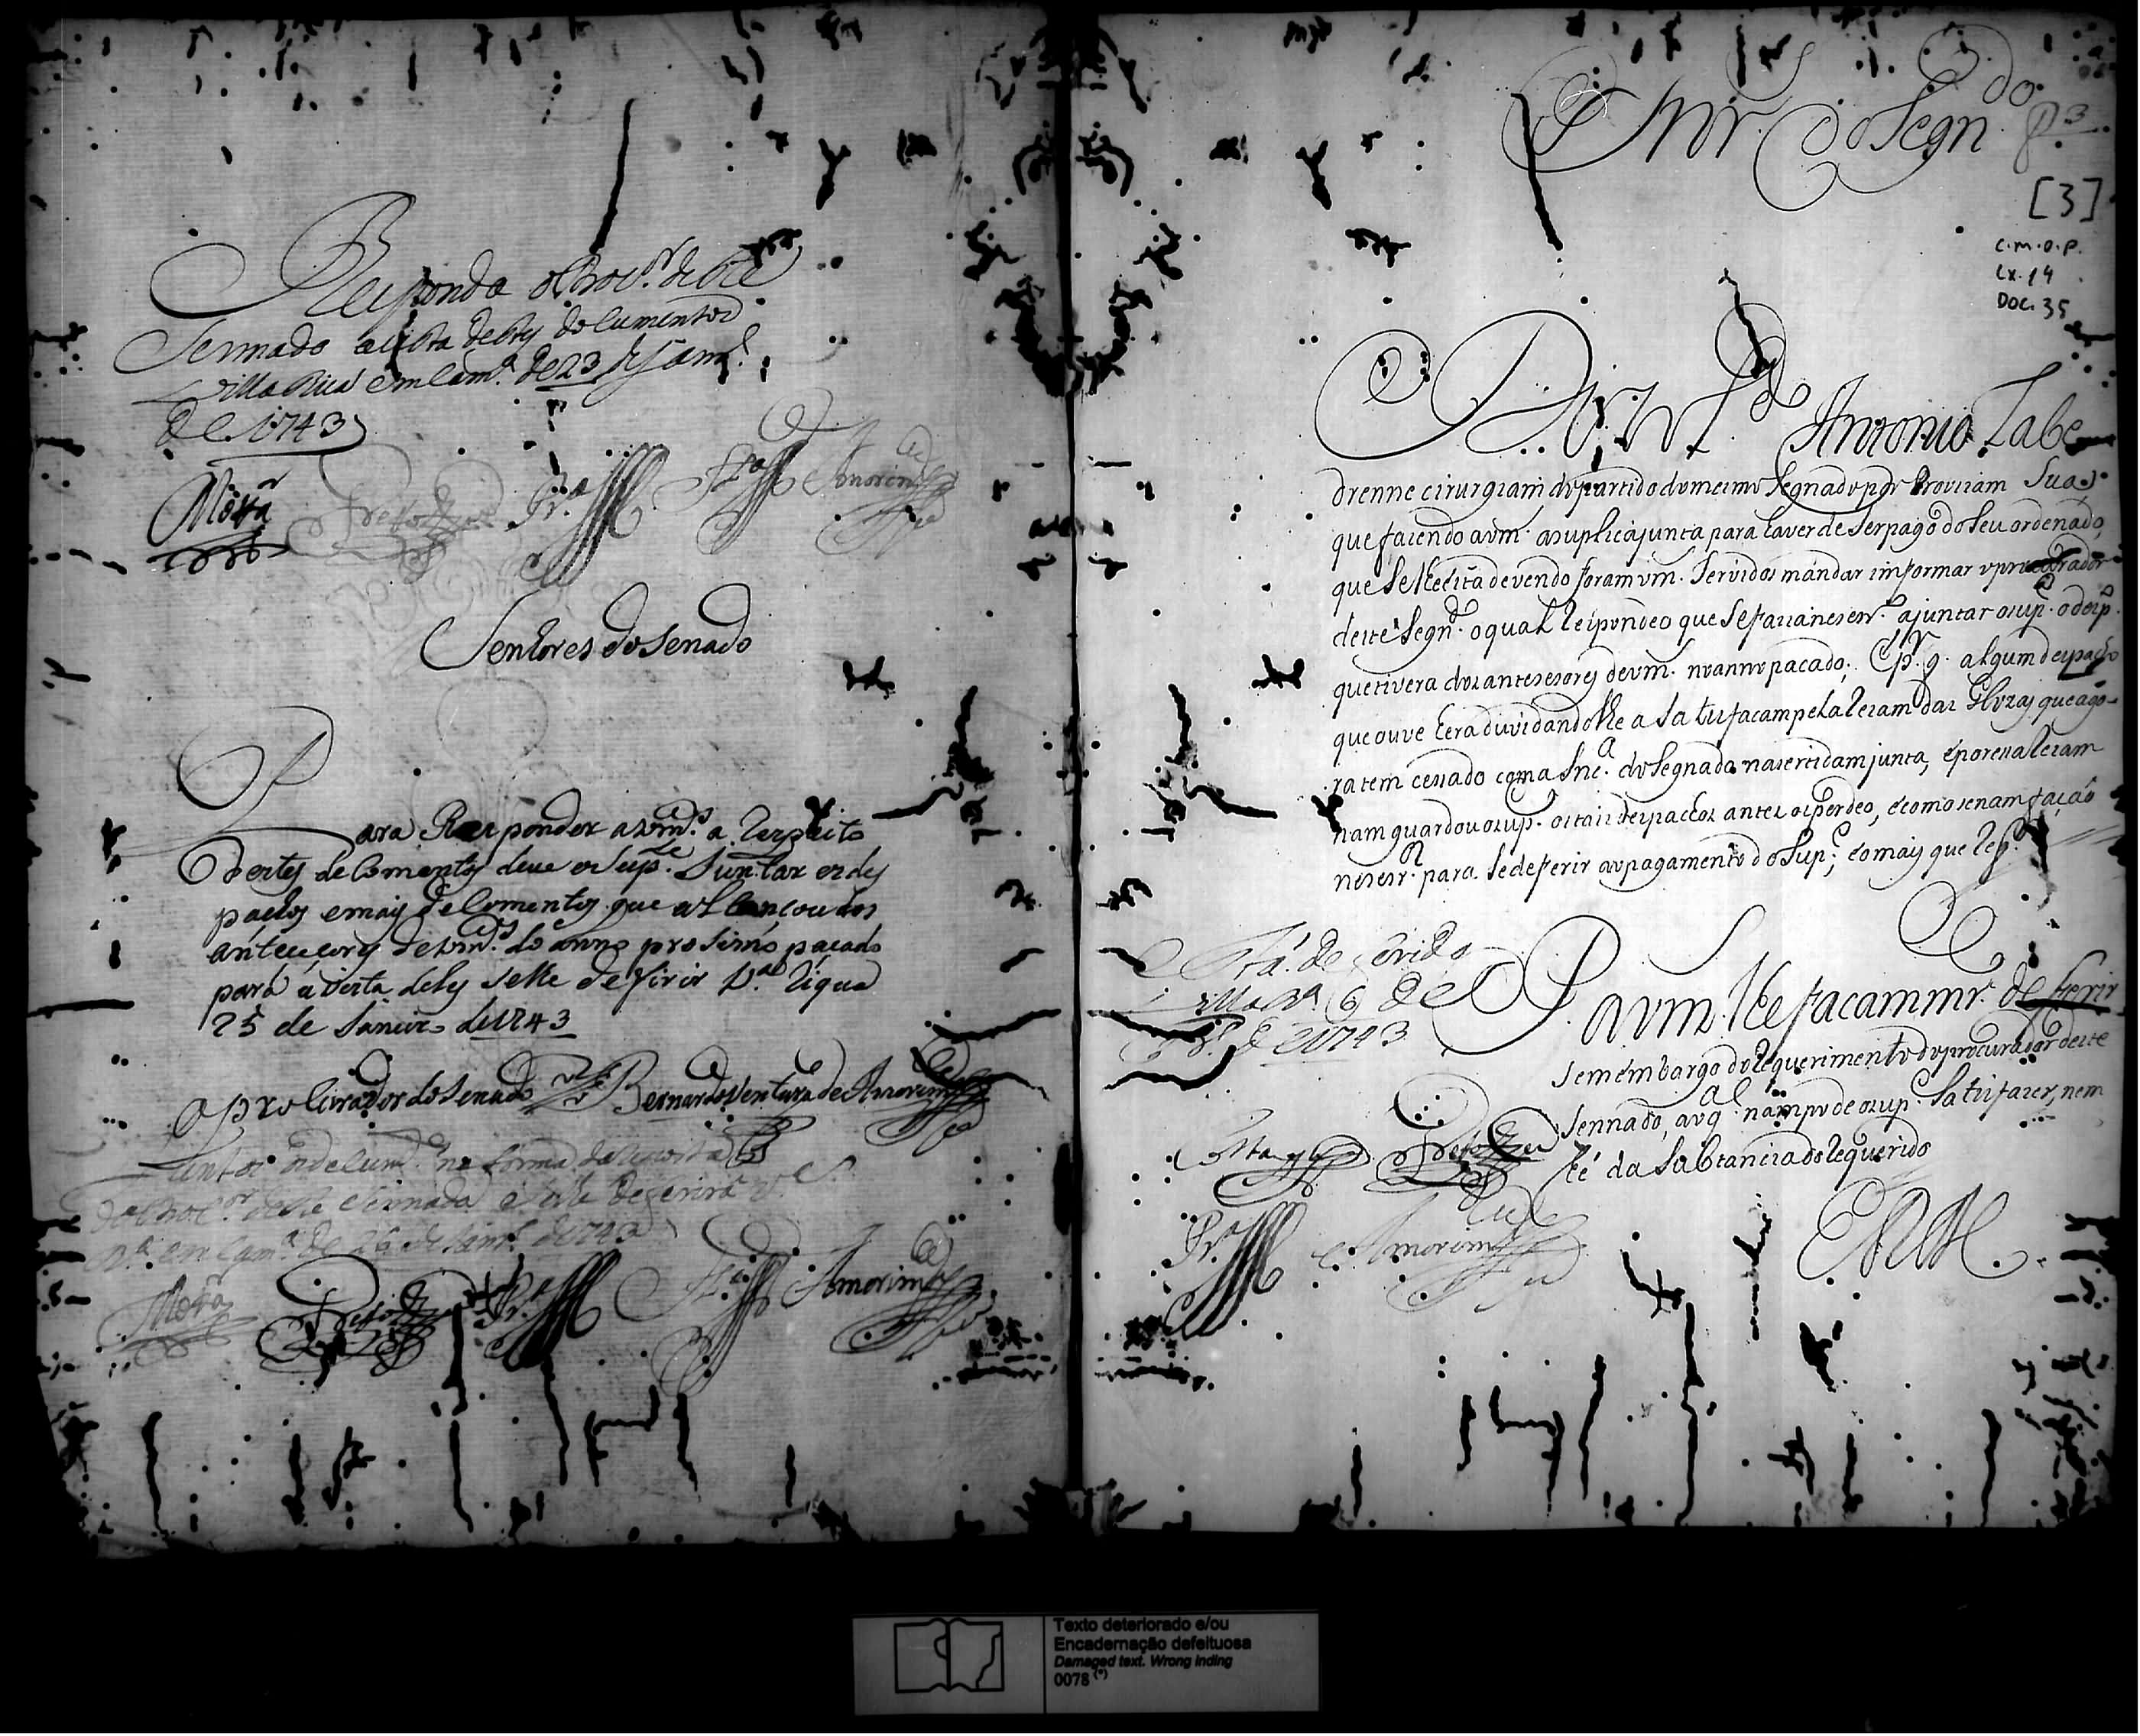 Responda o Procor. deste
Sennado a vista destes documentos
Villa Rica em Camra. de 23 de Janro.
de 1743
Motta Pra. Amorim
Senhores do Senado
Para Responder a vmces. a Respeito
destes decomentos deve o Supe. Juntar os des
pachos e mais decomentos que alcançou dos
anteceçores de vmces. do anno prosimo paçado
para a vista deles selhe defirir Va. Riqua
25 de Janeiro de 1743
O procurador do Senado Bernardo Ventura de Amorim
Juntos os docums. na forma da reposta
do Procor. deste Sennado se lhe deferirá
Ra. em Camra. de 26 de Janro. de 1743
Motta Pra. Amorim
Snr. do Segndo.
83
[3]
C.M.O.P.
Cx. 14
DOC. 35
Diz Antonio Labe
drenne cirurgiam do partido do mesmo Segnado por Provizam Sua
que fazendo a vm. a suplica junta para haver de ser pago do seu ordenado,
que se lhe está devendo foram vm. servidos mandar imformar o procurador
deste Segndo. o qual Respondeo que se fazia nesesro. ajuntar o supe. o desp.
que tivera dos antesesores de vm. no anno pacado; E pr. q. algum despacho
que ouve hera duvidandolhe a satisfacam pela Rezam das Glozas que ago-
ra tem cessado coma a Snca. do Segnado na sertidam junta, e por essa Rezam
nam guardou o sup. os tais despachos antes os perdeo, e como se nam façaõ
nesesr. para se deferir ao pagamento do Supe; e o mais que Rep.
Está deferido
Villa Ra. 9 de
de 1743
P. a vm. lhe facam mr. deferir
sem embargo do Requerimento do procurador deste
Sennado, ao q. nam pode o sup. satisfazer, nem
hé da sabtancia do Requerido
Costa Pra. Amorim
E R M.
Texto deteriorado e/ou
Encadernação defeituosa
Damaged text. Wrong inding
0078 (*)